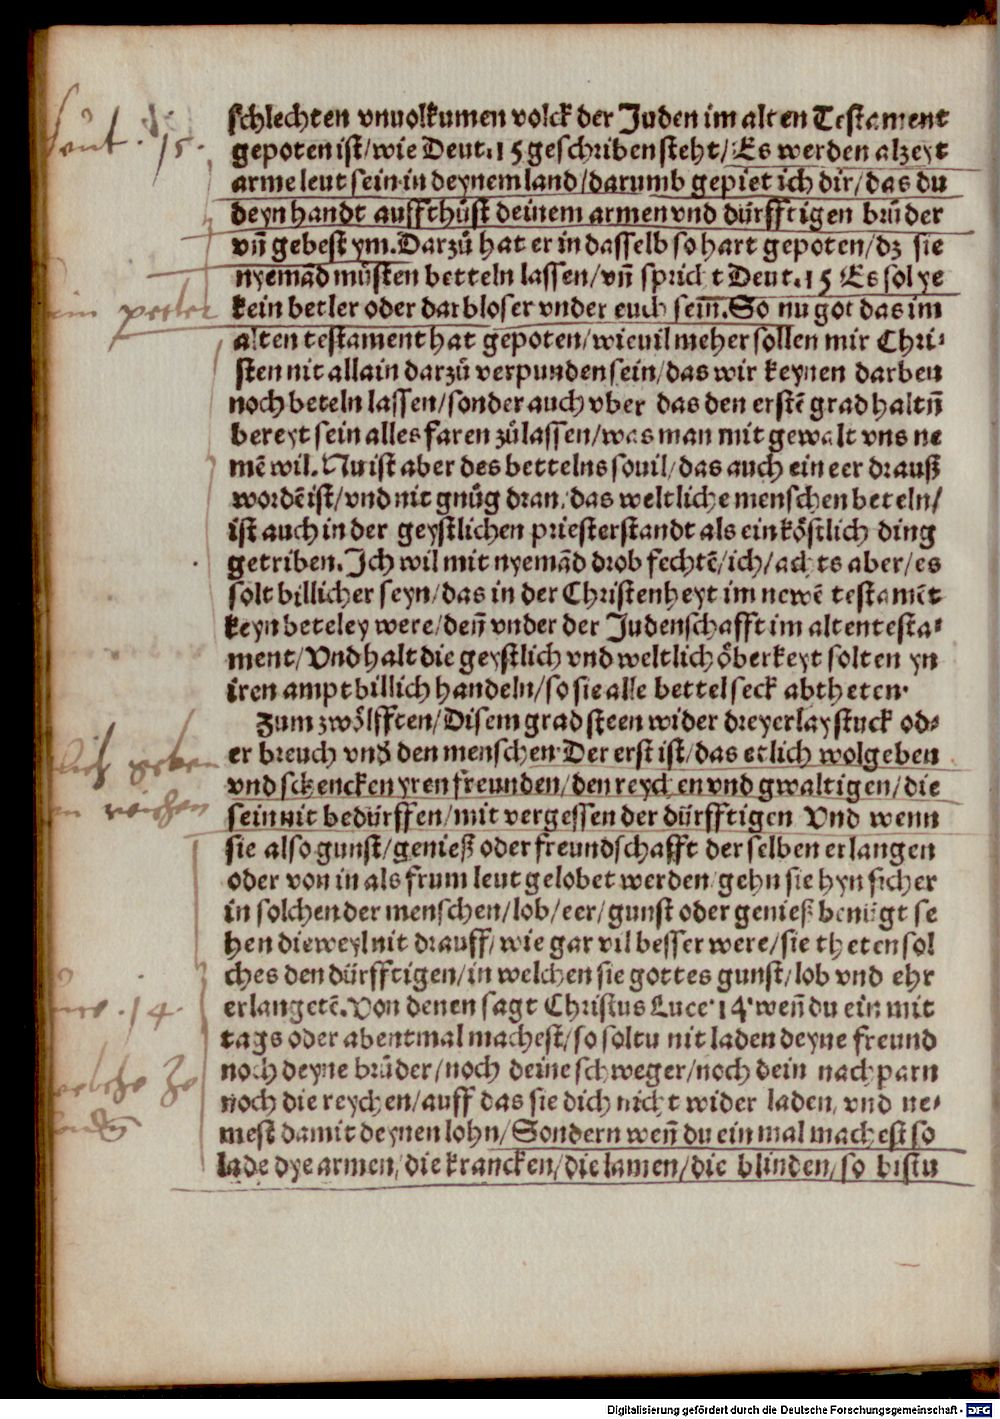 schlechten vnuolkumen volck der Juden im alten Testament
gepoten ist/wie Deut.15 geschriben steht/Es werden alzeyt
arme leut sein in deynem land/darumb gepiet ich dir/das du
deyn handt auffthůst deinem armen vnd dürfftigen brůder
vñ gebest ym.Darzů hat er in dasselb so hart gepoten/dz sie
nyemãd můsten betteln lassen/vñ spricht Deut.15 Es sol ye
kein betler oder darbloser vnder euch sein̄.So nu got das im
alten testament hat gepoten/wieuil meher sollen mir Chri⸗
sten nit allain darzů verpunden sein/das wir keynen darben
noch beteln lassen/sonder auch vber das den erstẽ grad haltñ
bereyt sein alles faren zůlassen/was man mit gewalt vns ne
mẽ wil.Nu ist aber des bettelns souil/das auch ein eer drauß
wordẽ ist/vnd nit gnůg dran/das weltliche menschen beteln/
ist auch in der geystlichen priesterstandt als ein köstlich ding
getriben.Ich wil mit nyemãd drob fechtẽ/ich/achts aber/es
solt billicher seyn/das in der Christenheyt im newẽ testamẽt
keyn beteley were/deñ vnder der Judenschafft im alten testa⸗
ment/Vnd halt die geystlich vnd weltlich öberkeyt solten yn
iren ampt billich handeln/so sie alle bettelseck abtheten.
Zum zwölfften/Disem grad steen wider dreyerlay stuck od⸗
er breuch vnd den menschen.Der erst ist/das etlich wolgeben
vnd schencken yren freunden/den reychen vnd gwaltigen/die
sein nit bedürffen/mit vergessen der dürfftigen Vnd wenn
sie also gunst/genieß oder freundschafft der selben erlangen
oder von in als frum leut gelobet werden/gehn sie hyn sicher
in solchen der menschen/lob/eer/gunst oder genieß benügt se
hen dieweyl nit drauff/wie gar vil besser were/sie theten sol
ches den dürfftigen/in welchen sie gottes gunst/lob vnd ehr
erlangetẽ.Von denen sagt Christus Luce.14.weñ du ein mit
tags oder abentmal machest/so soltu nit laden deyne freund
noch deyne brůder/noch deine schweger/noch dein nachparn
noch die reychen/auff das sie dich nicht wider laden/vnd ne⸗
mest damit deynen lohn/Sondern weñ du ein mal machest so
lade dye armen/die krancken/die lamen/die blinden/so bistu
Deut. 15.
petler
geben
reichen
.14.
Digitalisierung gefördert durch die Deutsche Forschungsgemeinschaft - DFG